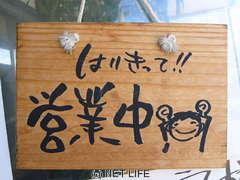 はりきって!!
営業中
@NET LIFE